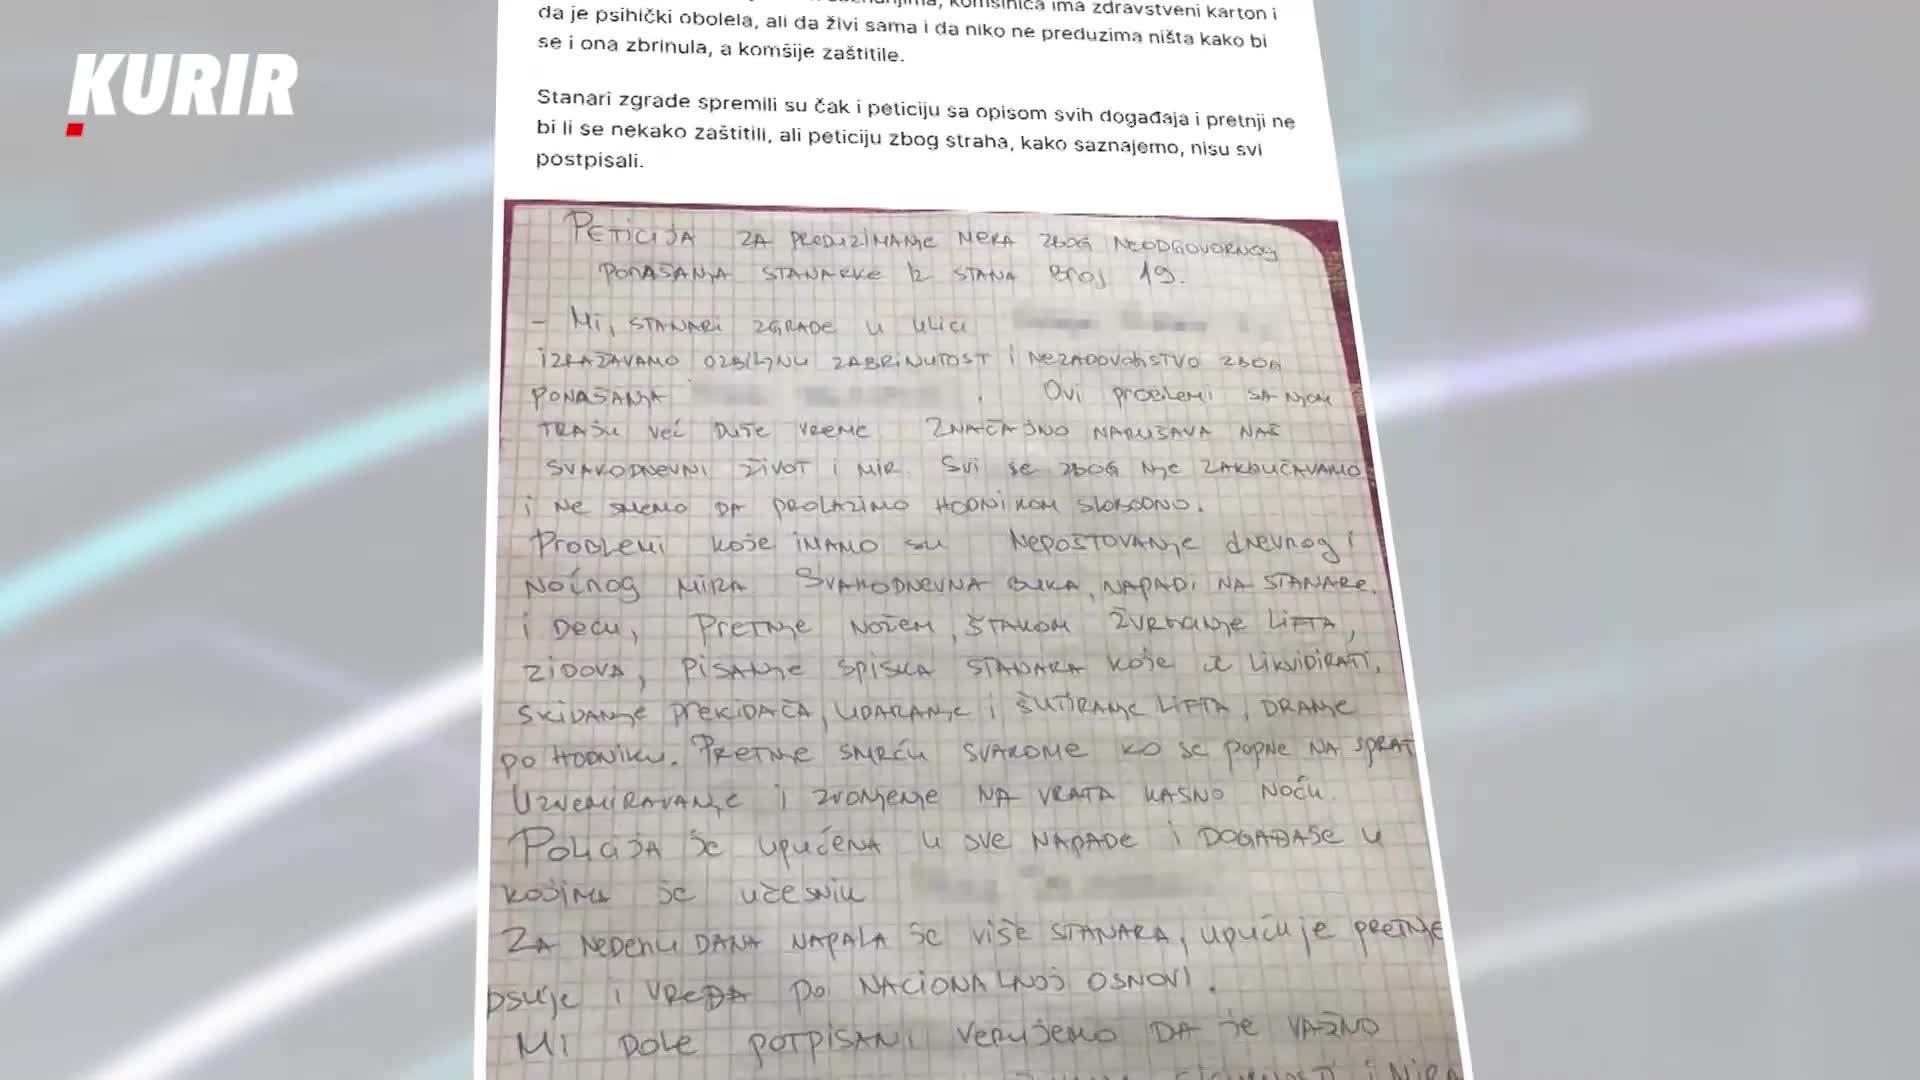 KURIR
komšinica ima zdravstveni karton i
da je psihički obolela, ali da živi sama i da niko ne preduzima ništa kako bi
se i ona zbrinula, a komšije zaštitile.
Stanari zgrade spremili su čak i peticiju sa opisom svih događaja i pretnji ne
bi li se nekako zaštitili, ali peticiju zbog straha, kako saznajemo, nisu svi
postpisali.
PETICIJA ZA PREDUZIMANJE MERA ZBOG NEODGOVORNOG
PONAŠANJA STANARKE IZ STANA BROJ 19.
- Mi, STANARI ZGRADE U ULICI
IZRAŽAVAMO OZBILJNU ZABRINUTOST I NEZADOVOLJSTVO ZBOG
PONAŠANJA . Ovi problemi SA NJOM
TRAJU VEĆ DUŽE VREME ZNAČAJNO NARUŠAVA NAŠ
SVAKODNEVNI ŽIVOT I MIR. Svi se ZBOG NJE ZAKLJUČAVAMO
i NE SMEMO DA PROLAZIMO HODNIKOM SLOBODNO.
Problemi koje IMAMO su NEPOŠTOVANJE dnevnog i
NOĆNOG MIRA SVAKODNEVNA BUKA, NAPADI NA STANARE,
i Decu, PRETNJE NOŽEM, ŠTAKOM ŽVRLJANJE LIFTA,
ZIDOVA, PISANJE SPISKA STANARA koje će LIKVIDIRATI,
SKIDANJE PREKIDAČA, UDARANJE i ŠUTIRANJE LIFTA, DRANJE
PO HODNIKU. PRETNJE SMRĆU SVAKOME KO SE POPNE NA SPRAT
UZNEMIRAVANJE i ZVONJENJE NA VRATA KASNO NOĆU.
POLICIJA JE UPUĆENA U SVE NAPADE i DOGAĐAJE U
KOJIMA JE UČESNIK
ZA NEDELJU DANA NAPALA JE VIŠE STANARA, upućuje PRETNJE
psuje i VREĐA po NACIONALNOJ OSNOVI.
MI DOLE POTPISANI VERUJEMO DA JE VAŽNO
i MIRA